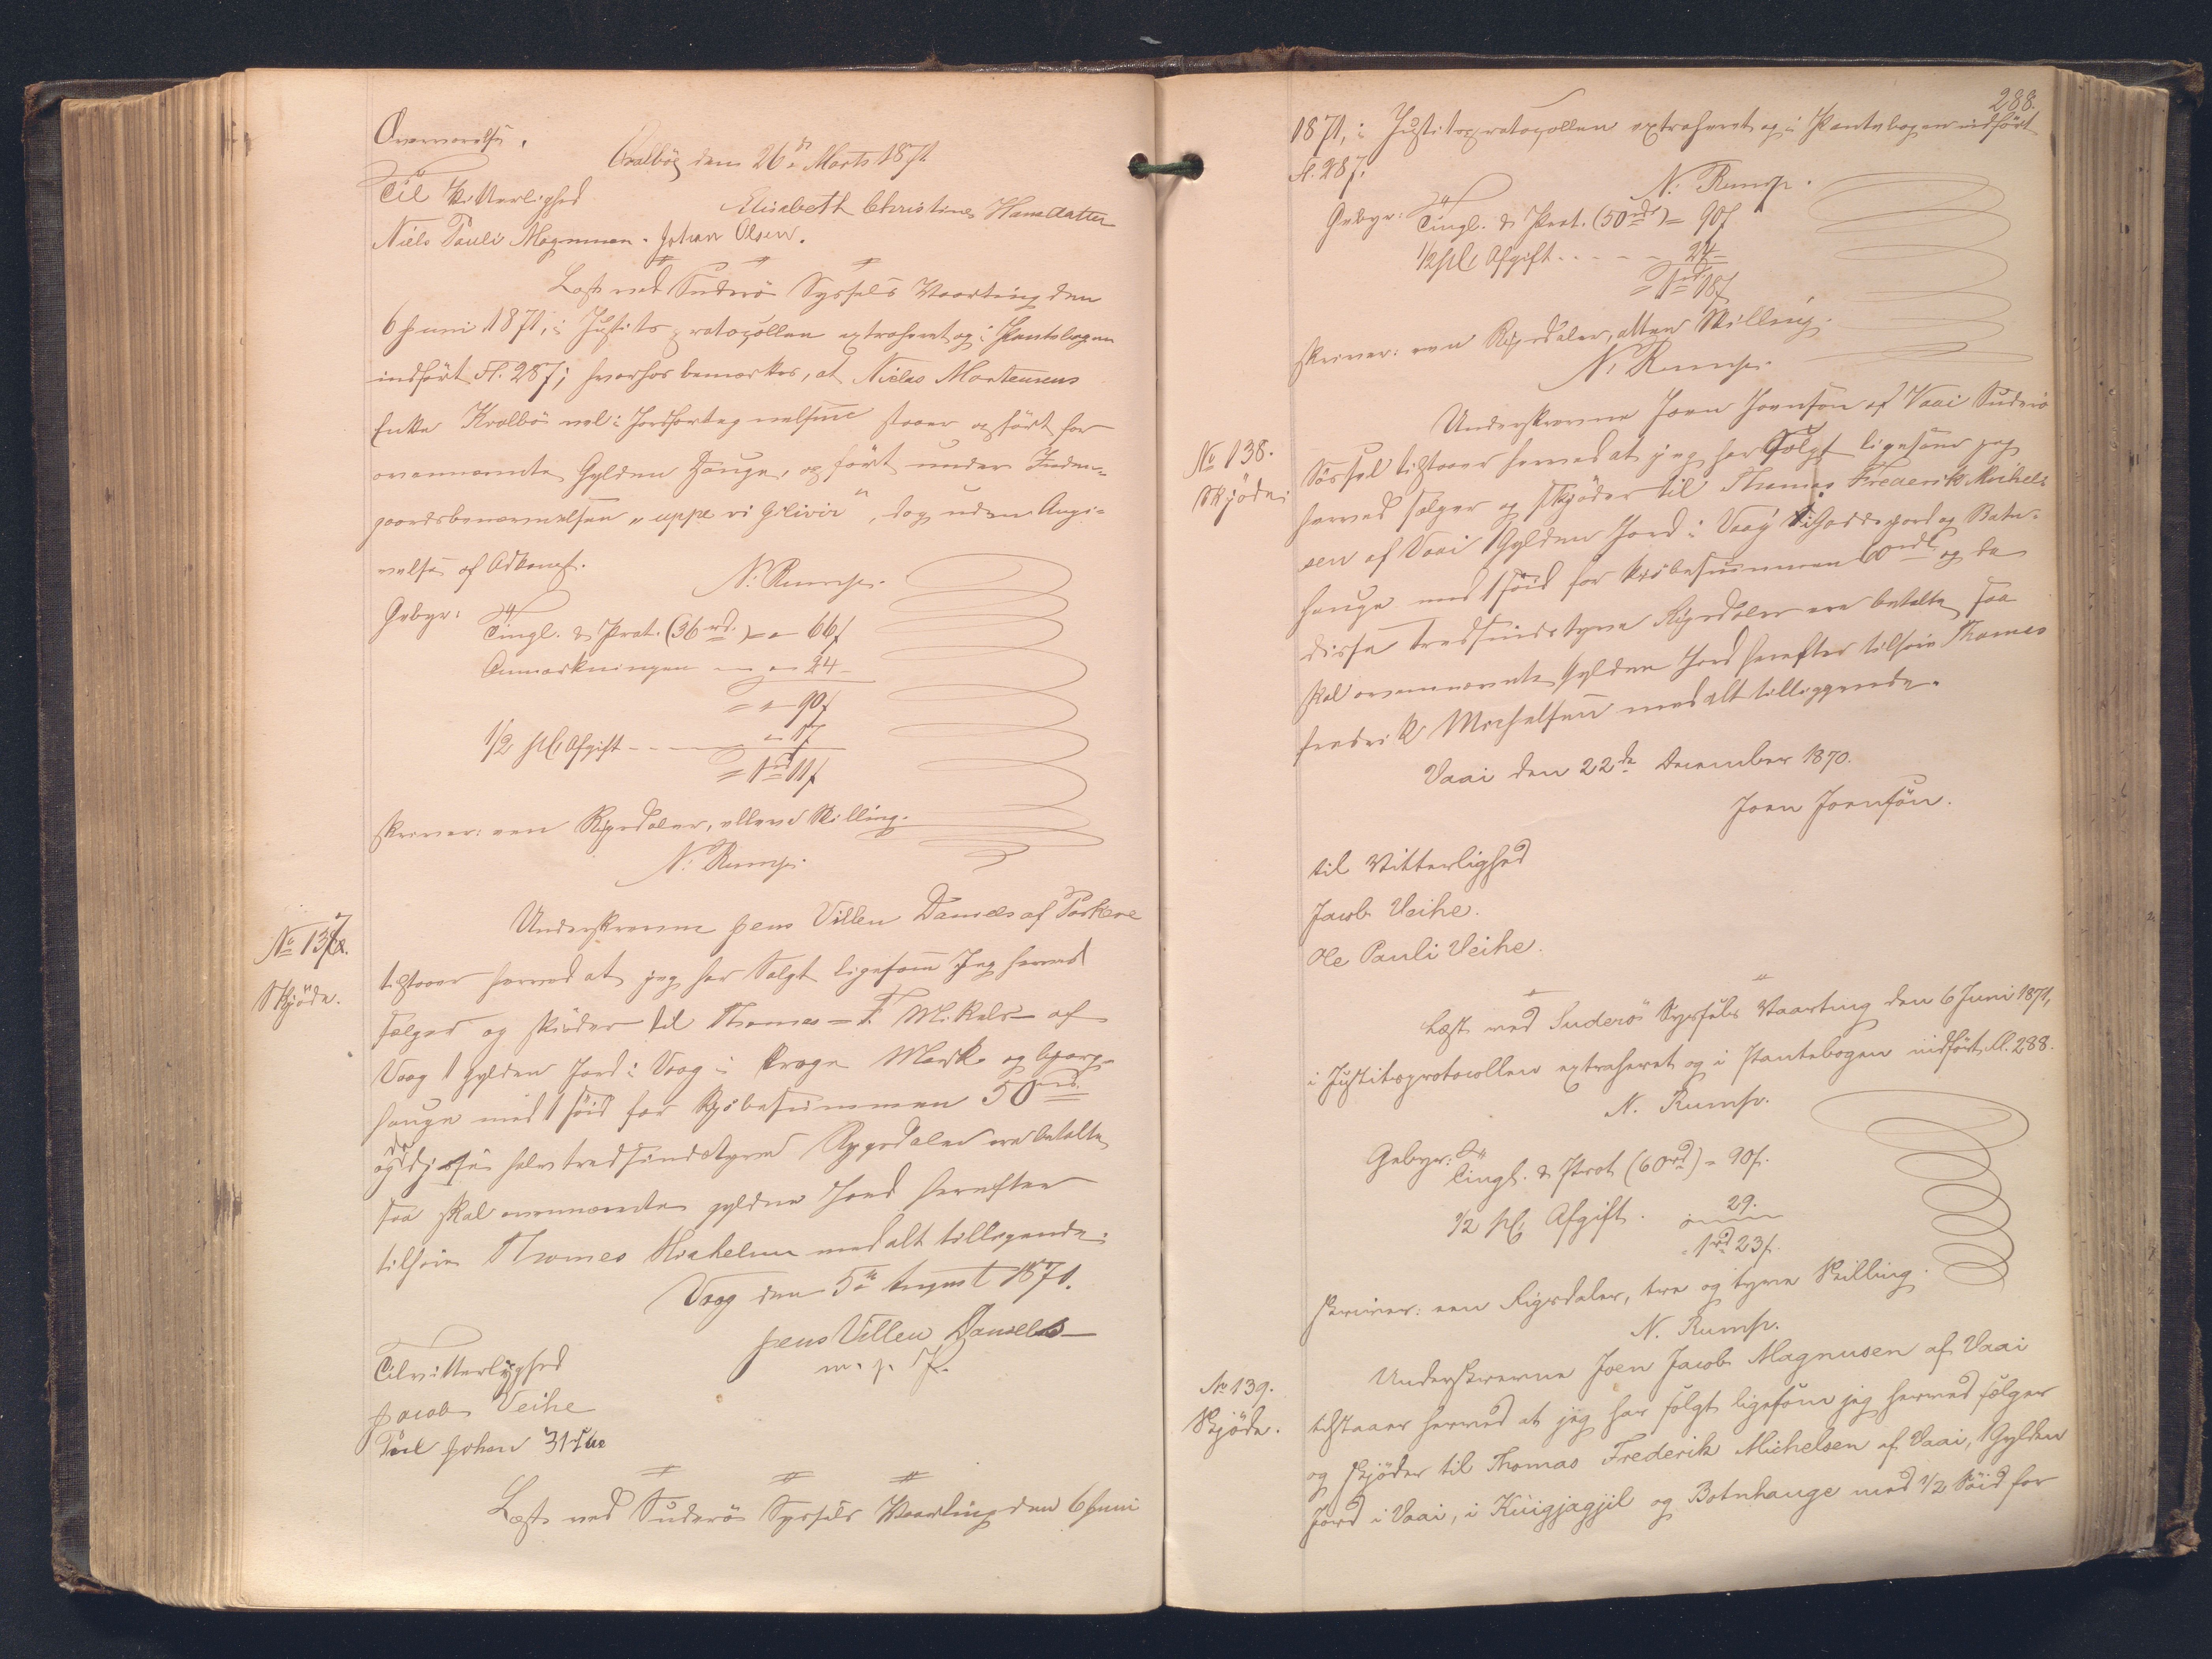 Overværelse.
Qvalbøe den 26de Marts 1871
Til Vitterlighed
Elisabeth Christine Hansdatter
Niels Pauli Magnussen. Johan Olsen.
Læst ved Suderö Syssels Vaarting den
6 Juni 1871, i Justitsprotocollen extraheret og i Pantebogen
indført Fl. 287; hvorhos bemærkes, at Niclas Mortensens
Enke Kvalbö vel i Jordfortegnelsen staaer opført for
ovennævnte Gylden Hauge, opført under Inden-
gaardsbenævnelsen "uppe vi Gilivir", dog uden Angi-
velse af Adkomst.
N. Rump.
Gebyr: Tingl. & Prot. (36 rd.) = 66 ſ
Anmærkningen 24
90 ſ
1/2 pCt Afgift 17
1 rd 11 ſ
skriver: een Rigsdaler, elleve Skilling.
N. Rump.
No 137.
Skjöde.
Underskrevne Jens Villen Daniels af Porkere
tilstaaer herved at jeg har Solgt ligesom Jeg herved
sælger og skiöder til Thomas F. Mikels af
Vaag 1 Gylden Jord i Vaag i Kroge Mark og
hauge med 1 söid for Kjöbesummen 50 rd.
og da disse halvtredsindstyve Rigsdaler ere betalte
saa skal ovennævnte gylden Jord herefter
tilhöre Thomas Michelsen med alt tilliggende.
Vaag den 5te August 1871.
Jens Villen Daniels
m. p. P.
Til vitterlighed
Jacob Veihe
Poul Johan
Læst ved Suderö Syssels Vaarting den 6 Juni
288.
1871, i Justitsprotocollen extraheret og i Pantebogen indført
Fl. 287.
N. Rump.
Gebyr: Tingl. & Prot. (50 rd) = 90 ſ
1/2 pCt Afgift 24
1 rd 18 ſ
skriver: een Rigsdaler, atten Skilling.
N. Rump.
No 138.
Skjöde.
Underskrevne Joen Joensön af Vaai Suderö
Sössel tilstaaer herved at jeg har Solgt ligesom jeg
herved sælger og skjöder til Thomas Frederik Michel-
sen af Vaai 1 Gylden Jord i Vaag og Botn-
hauge med 1 söid for Kiöbesummen 60 rdl og da
disse tredsindstyve Rigsdaler ere betalte saa
skal ovennævnte Gylden Jord herefter tilhöre Thomas
Fredrik Michelsen med alt tilliggende.
Vaai den 22de December 1870.
Joen Joensön.
til Vitterlighed
Jacob Veihe.
Ole Pauli Veihe.
Læst ved Suderö Syssels Vaarting den 6 Juni 1871,
i Justitsprotocollen extraheret og i Pantebogen indført Fl. 288.
N. Rump.
Gebyr: Tingl. & Prot (60 rd) = 90 ſ.
1/2 pCt Afgift. 29.
1 rd 23 ſ.
skriver: een Rigsdaler, tre og tyve Skilling.
N. Rump.
No 139.
Skjöde.
Underskrevne Joen Jacob Magnusen af Vaai
tilstaaer herved at jeg har solgt ligesom jeg herved sælger
og skjöder til Thomas Frederik Michelsen af Vaai, 1 Gylden
Jord i Vaai, i Kúigjagjil og Botnhauge med 1/2 Söid for